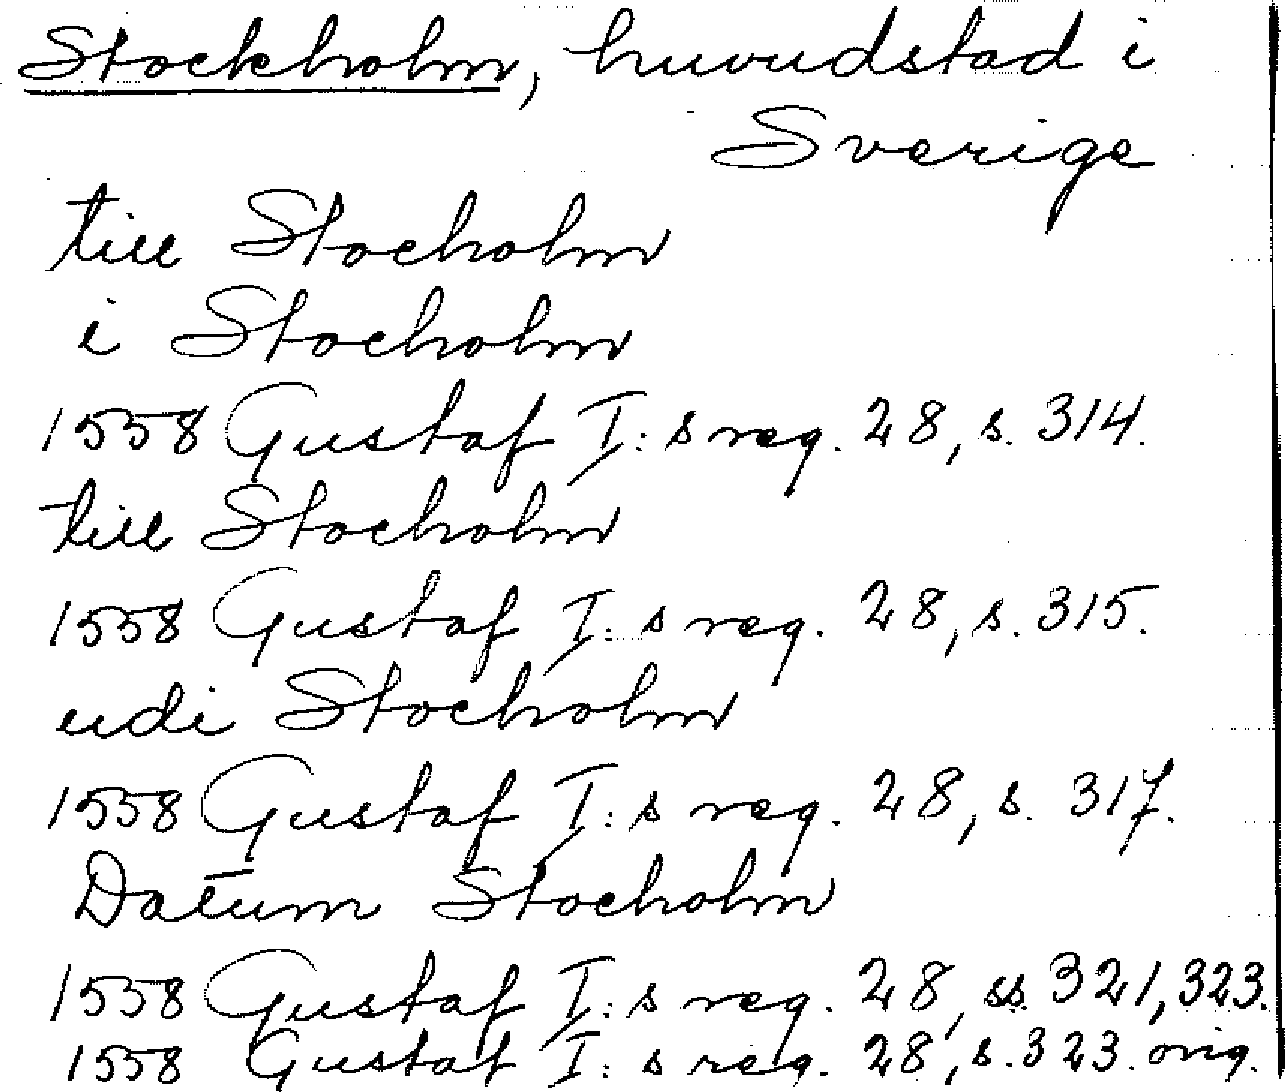 Stockholm, huvudstad i
Sverige
till Stocholm
i Stocholm
1558 Gustaf I:s reg. 28, s. 314.
till Stocholm
1558 Gustaf I:s reg. 28, s. 315.
udi Stocholm
1558 Gustaf I:s reg. 28, s. 317.
Datum Stocholm
1558 Gustaf I:s reg. 28, ss. 321, 323.
1558 Gustaf I:s reg. 28, s. 323. orig.